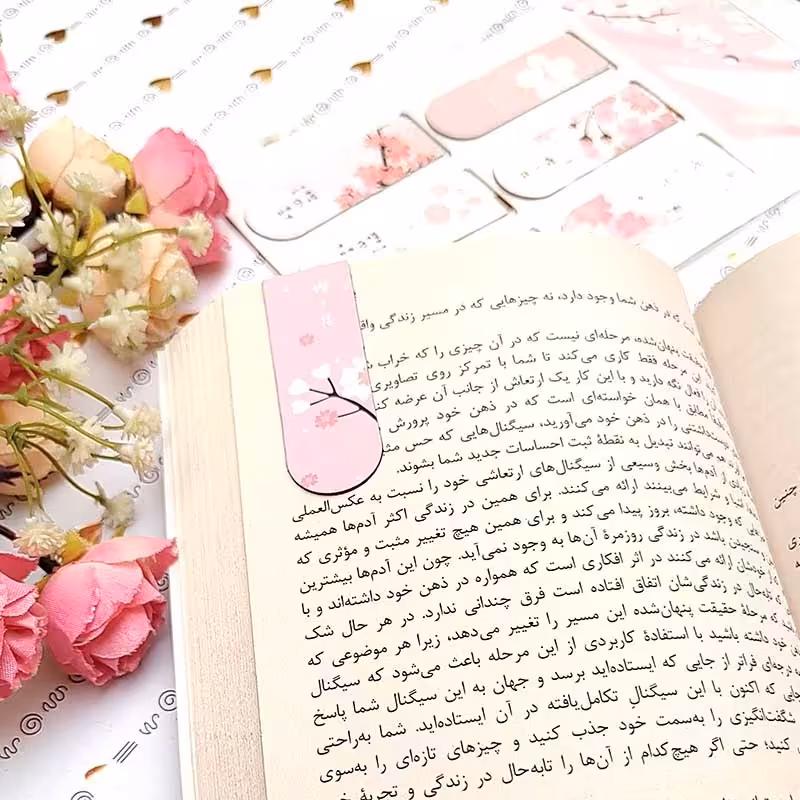 که در ذهن شما وجود دارد، نه چیزهایی که در مسیر زندگی
حقیقت پنهان‌شده، مرحله‌ای نیست که در آن چیزی را که خراب
این مرحله فقط کاری می‌کند تا شما با تمرکز روی تصاویری
فعال نگه دارید و با این کار یک ارتعاش از جانب آن عرضه
مطابق با همان خواسته‌ای است که در ذهن خود پرورش
در ذهن خود می‌آورید، سیگنال‌هایی که حس
هم می‌توانند تبدیل به نقطهٔ ثبت احساسات جدید شما بشوند.
از آدم‌ها بخش وسیعی از سیگنال‌های ارتعاشی خود را نسبت به عکس‌العملی
و شرایط می‌بینند ارائه می‌کنند. برای همین در زندگی اکثر آدم‌ها همیشه
که وجود داشته، بروز پیدا می‌کند و برای همین هیچ تغییر مثبت و مؤثری که
باشد در زندگی روزمرهٔ آن‌ها به وجود نمی‌آید. چون این آدم‌ها بیشترین
خودشان ارائه می‌کنند در اثر افکاری است که همواره در ذهن خود داشته‌اند و با
تابه‌حال در زندگی‌شان اتفاق افتاده است فرق چندانی ندارد. در هر حال شک
که مرحلهٔ حقیقت پنهان‌شده این مسیر را تغییر می‌دهد، زیرا هر موضوعی که
خود داشته باشید با استفادهٔ کاربردی از این مرحله باعث می‌شود که سیگنال
درجه‌ای فراتر از جایی که ایستاده‌اید برسد و جهان به این سیگنال شما پاسخ
جایی که اکنون با این سیگنالِ تکامل‌یافته در آن ایستاده‌اید. شما به‌راحتی
شگفت‌انگیزی را به‌سمت خود جذب کنید و چیزهای تازه‌ای را به‌سوی
کنید؛ حتی اگر هیچ‌کدام از آن‌ها را تابه‌حال در زندگی و تجربهٔ
چنین